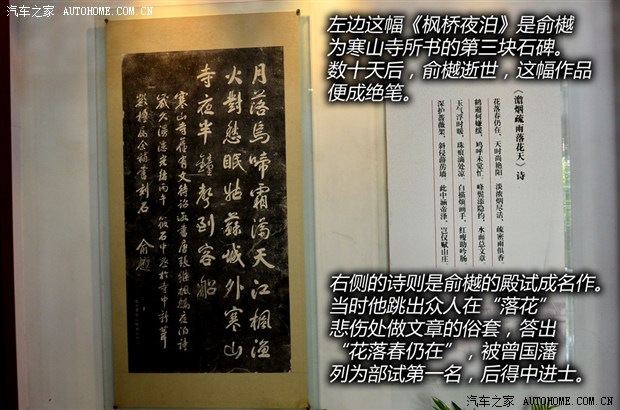 汽车之家 AUTOHOME.COM.CN
左边这幅《枫桥夜泊》是俞樾
为寒山寺所书的第三块石碑。
数十天后，俞樾逝世，这幅作品
便成绝笔。
月落烏啼霜滿天江楓漁
火對愁眠姑蘇城外寒山
寺夜半鐘聲到客船
寒山寺舊有文待詔所書唐張繼楓橋夜泊詩
歲久漫漶光緒丙午筱石中丞於寺中新葺
數楹屬余補書刻石 俞樾
《澹烟疏雨落花天》诗
花落春仍在，天时尚艳阳。淡浓烟尽活，疏密雨俱香。
鹤避何嫌缓，鸠呼未觉忙。峰鬟添隐约，水面总文章。
玉气浮时暖，珠痕滴处凉。白描烦画手，红瘦助吟肠。
深护蔷薇架，斜侵薜荔墙。此中涵帝泽，岂仅赋山庄
右侧的诗则是俞樾的殿试成名作。
当时他跳出众人在“落花”
悲伤处做文章的俗套，答出
“花落春仍在”，被曾国藩
列为部试第一名，后得中进士。
汽车之家 AUTOHOME.COM.CN